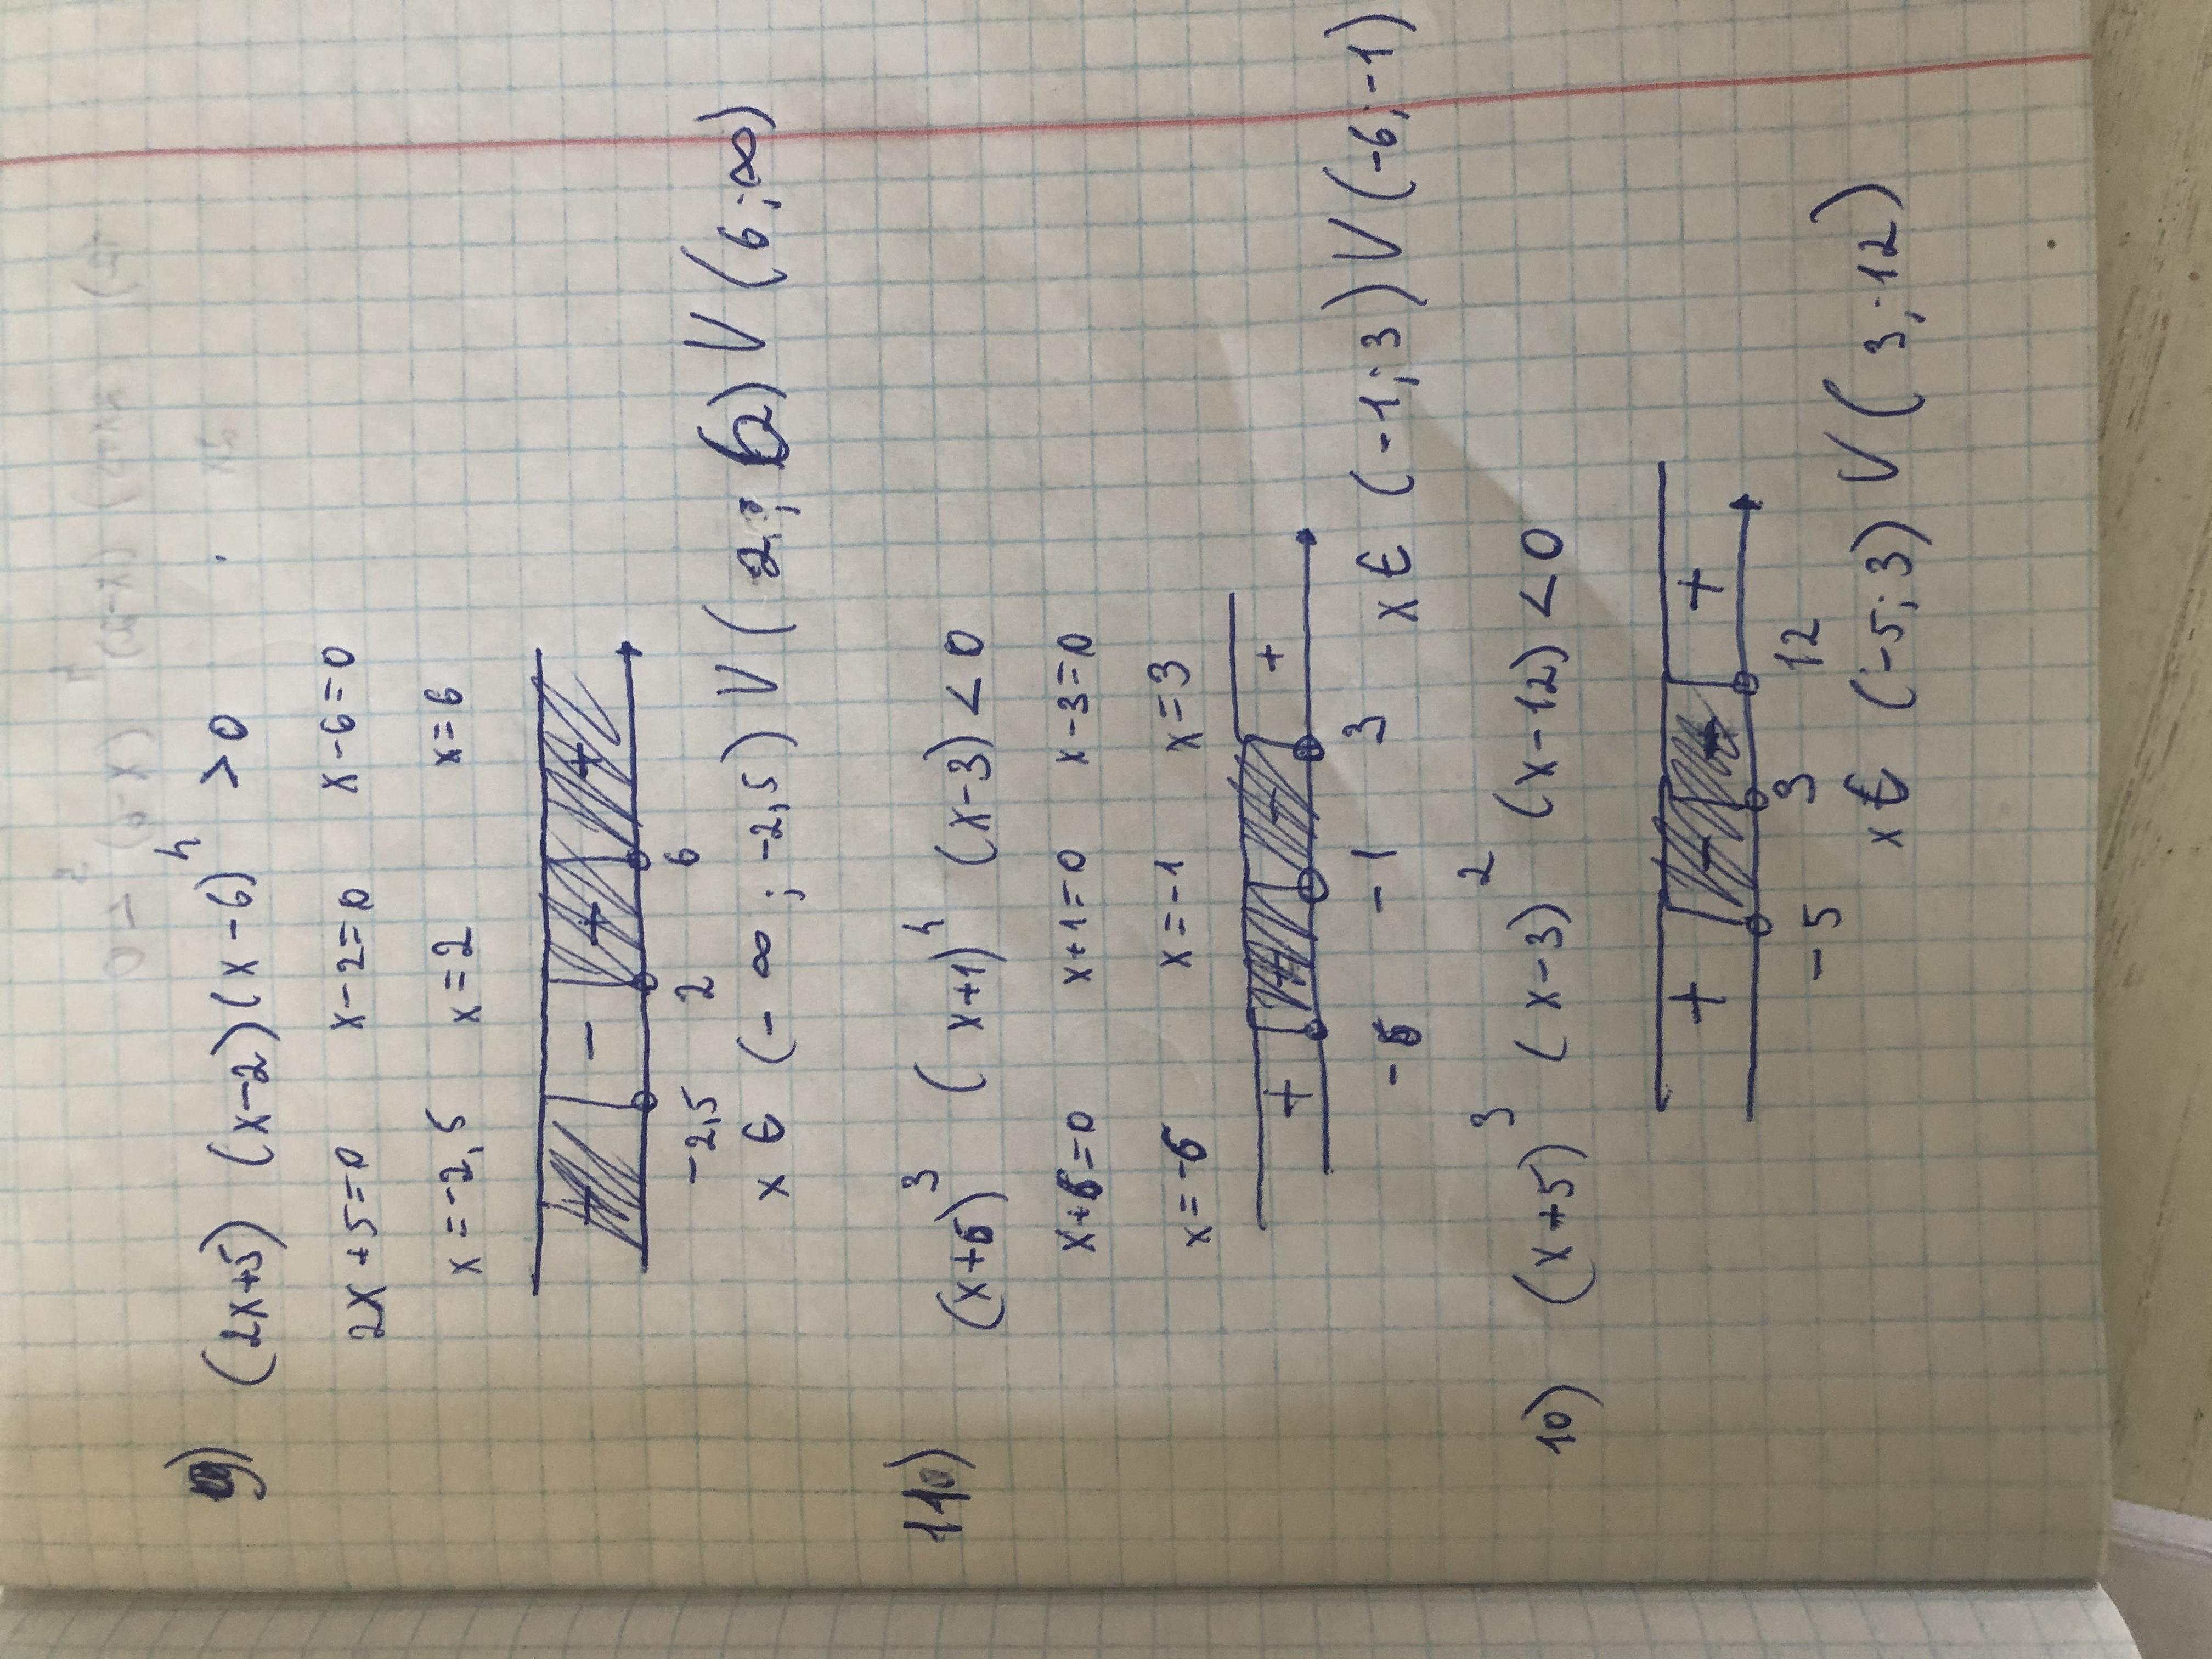 9) (2x+5) (x-2)(x-6)⁴ >0
2x+5=0 x-2=0 x-6=0
x=-2,5 x=2 x=6
+ - + +
-2,5 2 6
x ∈ (-∞; -2,5) V (2; 6) V (6; ∞)
11) (x+6)³ (x+1)⁴ (x-3)<0
x+6=0 x+1=0 x-3=0
x=-6 x=-1 x=3
+ - +
-6 -1 3
x ∈ (-1;3) V (-6;-1)
10) (x+5)³ (x-3)² (x-12)<0
+ - +
-5 3 12
x ∈ (-5;3) V (3;12)